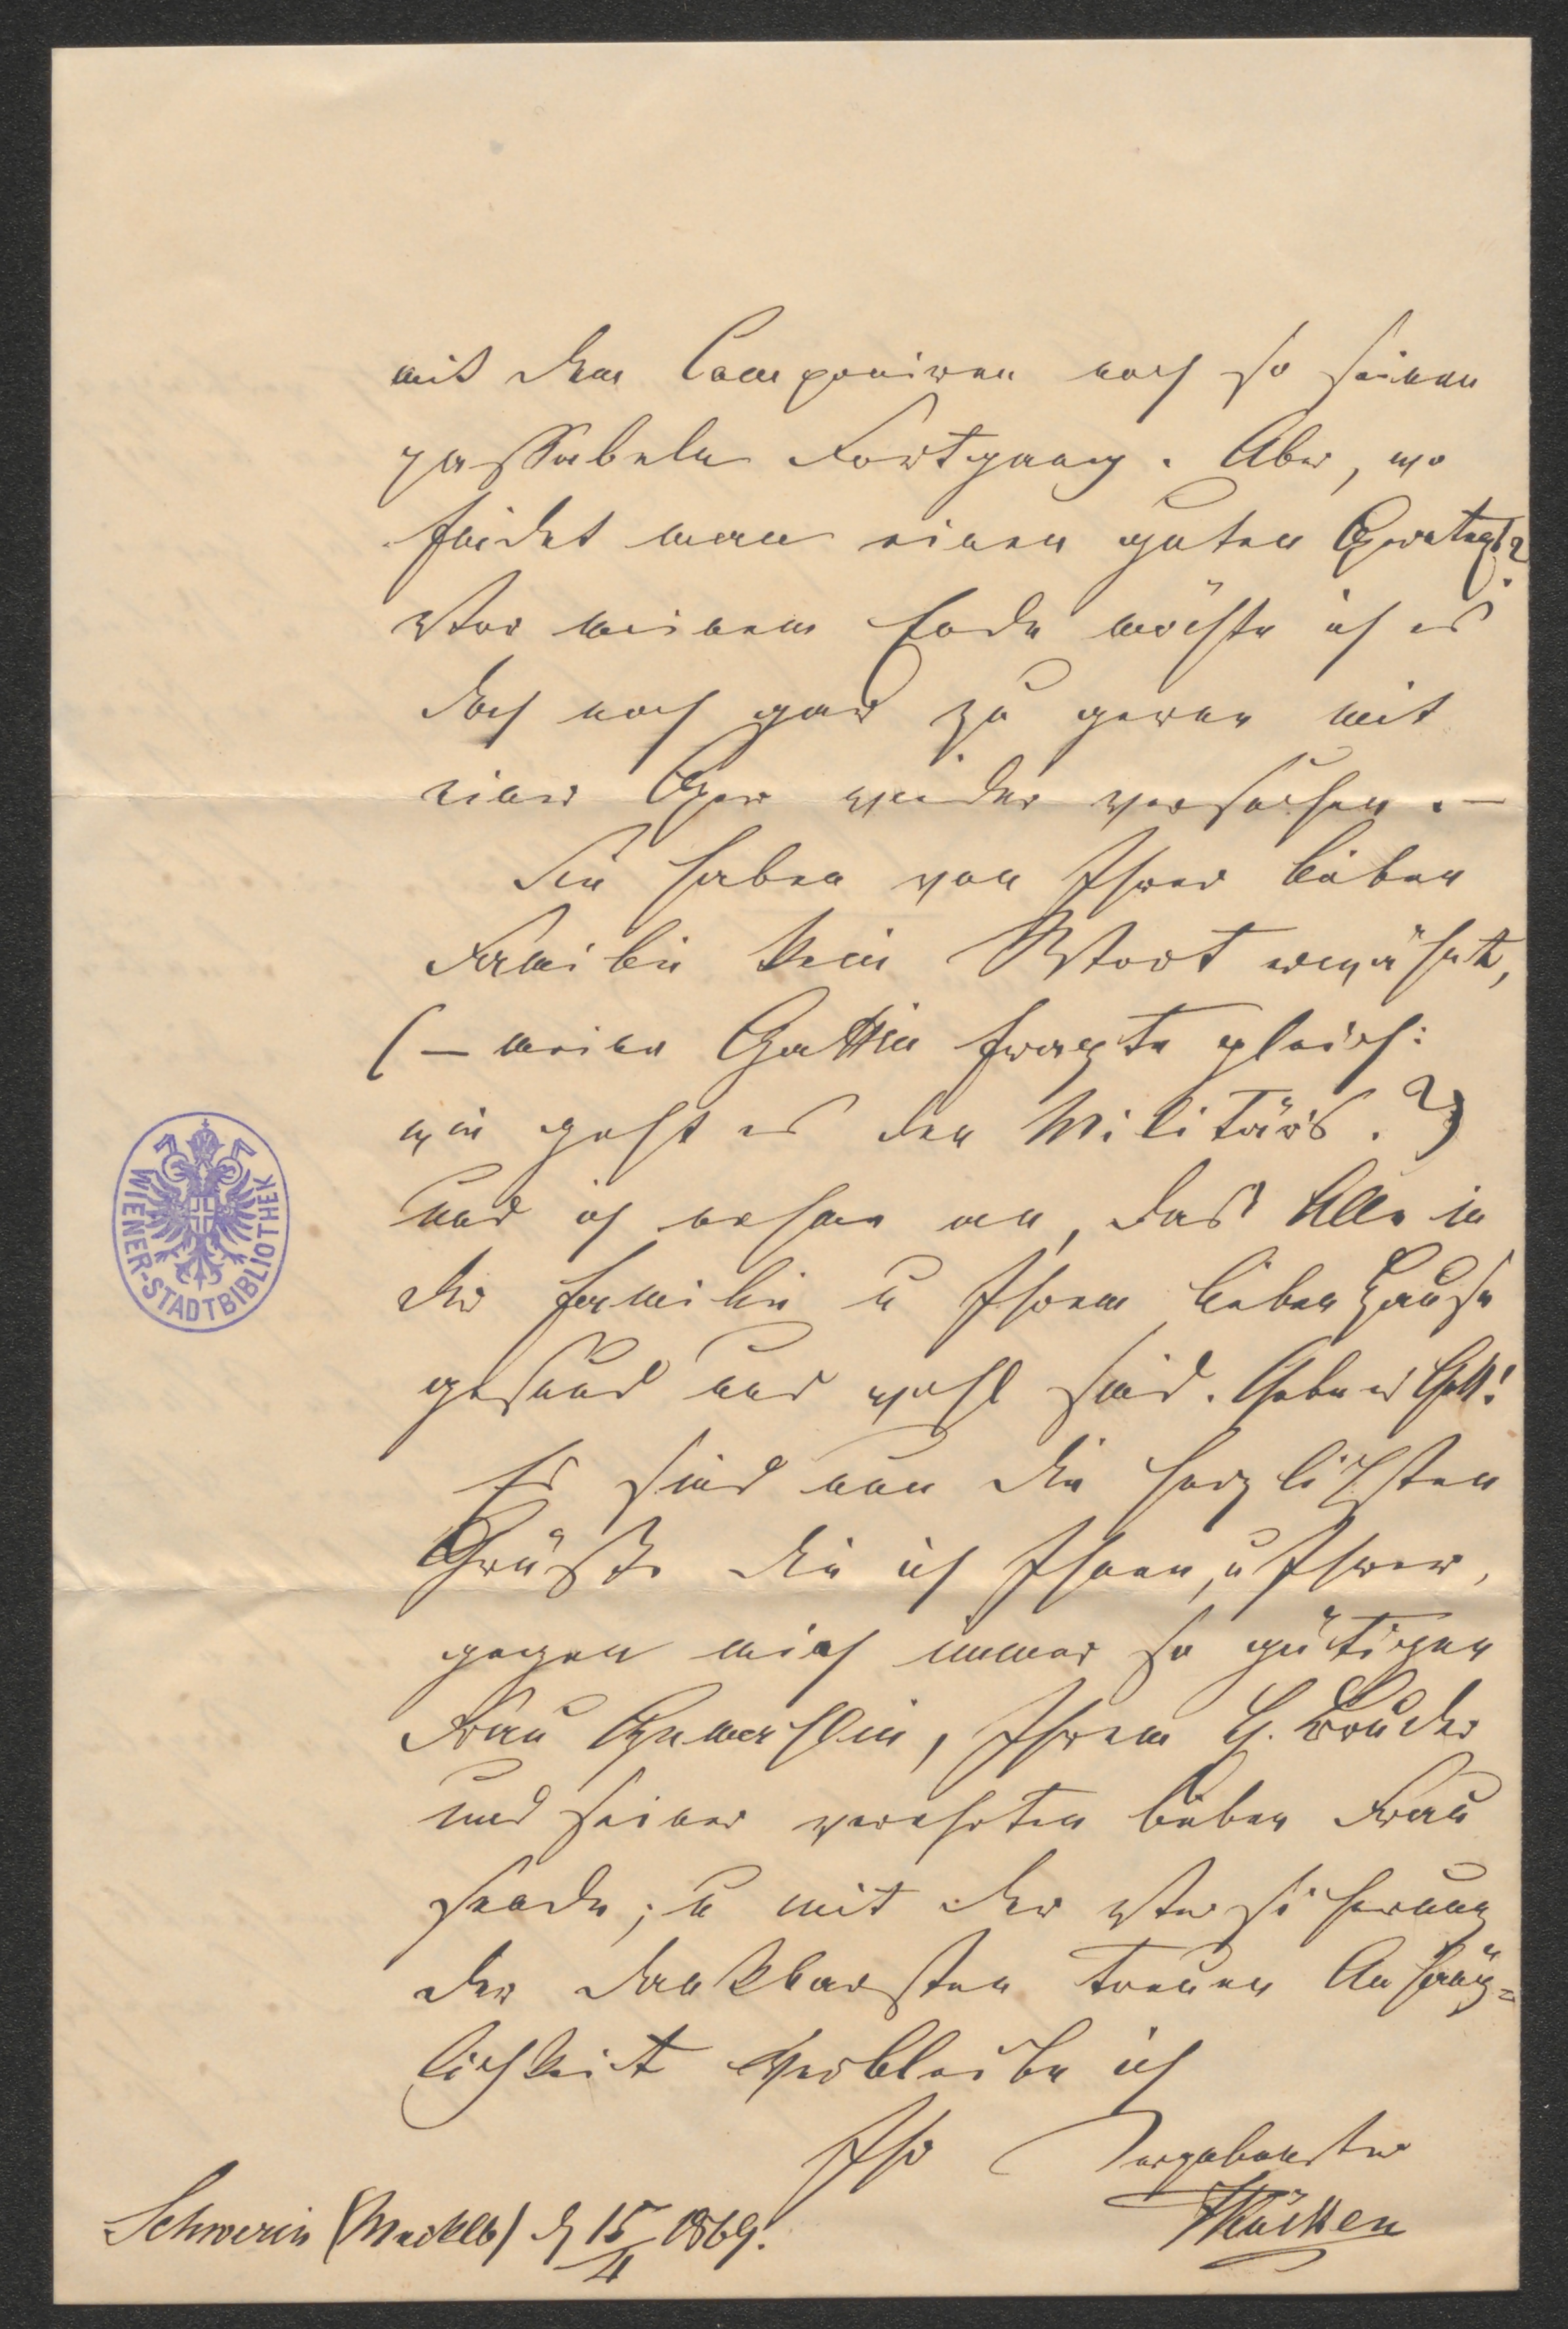 mit dem Componiren noch so seinen
passabeln Fortgang. Aber, wo
findet man einen guten Operntext?
Vor meinem Ende möchte ich es
doch noch gar zu gerne mit
einer Oper wieder versuchen. –
Sie haben von Ihrer lieben
Familie kein Wort erwähnt,
(– meine Gattin fragte gleich:
wie geht es den Militärs.?)
und ich nehme an, das Alle in
der Familie u Ihrem lieben Hause
gesund und wohl sind. Gebe es Gott!
Es sind nun die herzlichsten
Grüße die ich Ihnen, u Ihrer,
gegen mich immer so gütigen
Frau Gemahlin, Ihrem H. Bruder
und seiner verehrten lieben Frau
sende; u mit der Versicherung
der dankbarsten treuen Anhäng=
lichkeit verbleibe ich
Ihr ergebenster
FKücken
Schwerin (Mecklb) d 15/4 1869.
WIENER-STADTBIBLIOTHEK